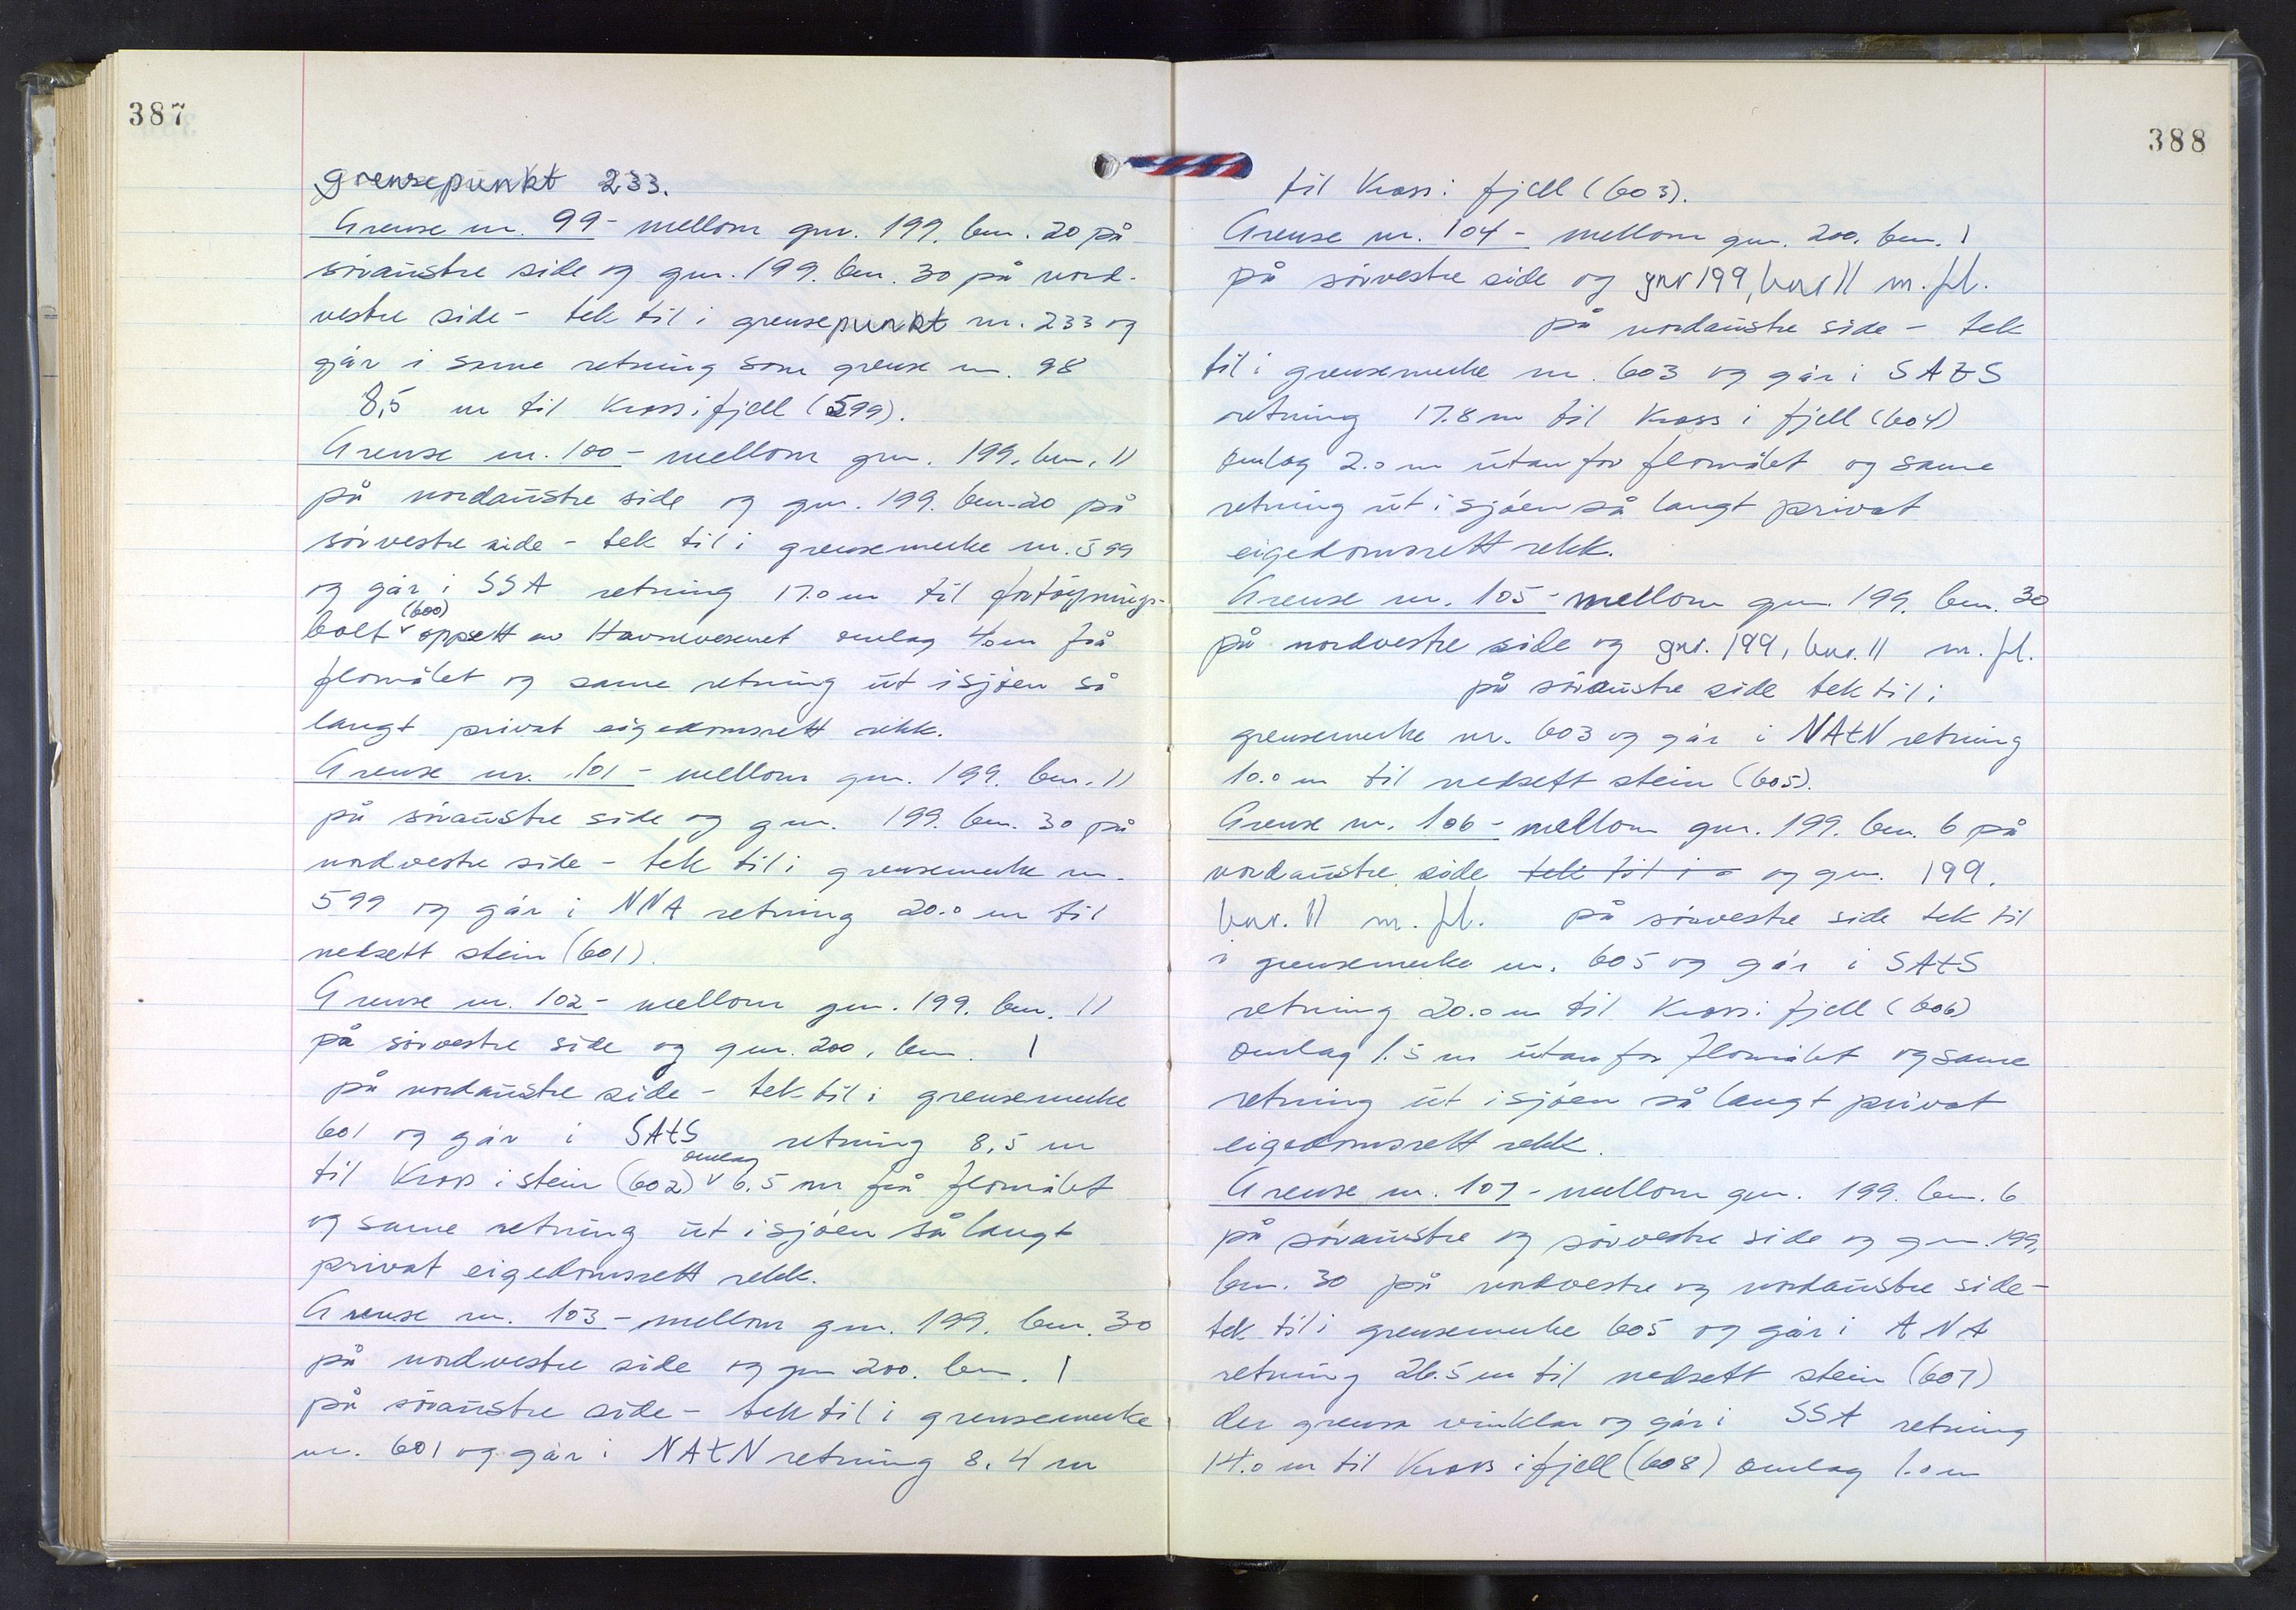 387
grensepunkt 233.
Grense nr. 99 - mellom gnr. 199. bnr. 20 på
søraustre side og gnr. 199. bnr. 30 på nord-
vestre side - tek til i grensepunkt nr. 233 og
går i same retning som grense nr. 98
8,5 m til kross i fjell (599).
Grense nr. 100 - mellom gnr. 199. bnr. 11
på nordaustre side og gnr. 199. bnr. 20 på
sørvestre side - tek til i grensemerke nr. 599
og går i SSA retning 17.0 m til fortøynings-
bolt (600) oppsett av Havnevesenet omlag 4.0 m frå
flomålet og same retning ut i sjøen så
langt privat eigedomsrett rekk.
Grense nr. 101 - mellom gnr. 199. bnr. 11
på søraustre side og gnr. 199. bnr. 30 på
nordvestre side - tek til i grensemerke nr.
599 og går i NNA retning 20.0 m til
nedsett stein (601).
Grense nr. 102 - mellom gnr. 199. bnr. 11
på sørvestre side og gnr. 200, bnr. 1
på nordaustre side - tek til i grensemerke
601 og går i SAtS retning 8,5 m
til Kross i stein (602) omlag 6.5 m frå flomålet
og same retning ut i sjøen så langt
privat eigedomsrett rekk.
Grense nr. 103 - mellom gnr. 199. bnr. 30
på nordvestre side og gnr 200. bnr. 1
på søraustre side - tek til i grensemerke
nr. 601 og går i NAtN retning 8.4 m
388
til Kross i fjell (603).
Grense nr. 104 - mellom gnr. 200. bnr. 1
på sørvestre side og gnr 199, bnr 11 m. fl.
på nordaustre side - tek
til i grensemerke nr. 603 og går i SAtS
retning 17.8 m til Kross i fjell (604)
omlag 2.0 m utanfor flomålet og same
retning ut i sjøen så langt privat
eigedomsrett rekk.
Grense nr. 105 - mellom gnr. 199. bnr. 30
på nordvestre side og gnr. 199, bnr. 11 m. fl.
på søraustre side tek til i
grensemerke nr. 603 og går i NAtN retning
10.0 m til nedsett stein (605).
Grense nr. 106 - mellom gnr. 199. bnr. 6 på
nordaustre side tek til i - og gnr. 199.
bnr. 11 m. fl. på sørvestre side tek til
i grensemerke nr. 605 og går i SAtS
retning 20.0 m til Kross i fjell (606)
omlag 1.5 m utanfor flomålet og same
retning ut i sjøen så langt privat
eigedomsrett rekk.
Grense nr. 107 - mellom gnr. 199. bnr. 6
på søraustre og sørvestre side og gnr. 199,
bnr. 30 på nordvestre og nordaustre side -
tek til i grensemerke 605 og går i ANA
retning 26.5 m til nedsett stein (607)
der grensa vinklar og går i SSA retning
14.0 m til Kross i fjell (608) omlag 1.0 m